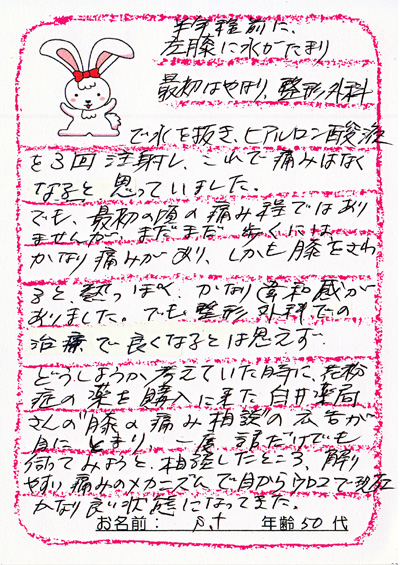 半年程前に、
左膝に水がたまり
最初はやはり、整形外科
で水を抜き、ヒアルロン酸液
を3回注射し、これで痛みはなく
なると思っていました。
でも、最初の頃の痛み程ではあり
ませんが、まだまだ歩くには
かなり痛みがあり、しかも膝をさわ
ると熱っぽく、かなり違和感が
ありました。でも整形外科での
治療で良くなるとは思えず
どうしようか考えていた時に、花粉
症の薬を購入に来た臼井薬局
さんの"膝の痛み相談の広告が
目にとまり、一度話だけでも
伺ってみようと、相談したところ、解り
やすい痛みのメカニズムで目からウロコで現在
かなり良い状態になってきた。
お名前： 年齢50代